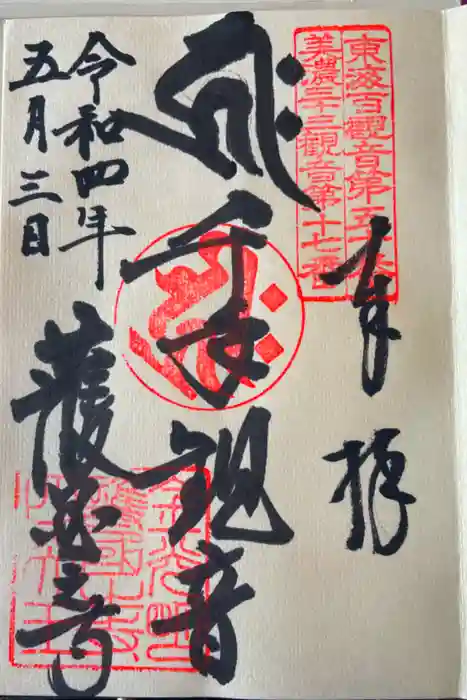 東海百観音第五十番
美濃三十三観音第十七番
奉拝
千手観音
護国之寺
令和四年
五月三日